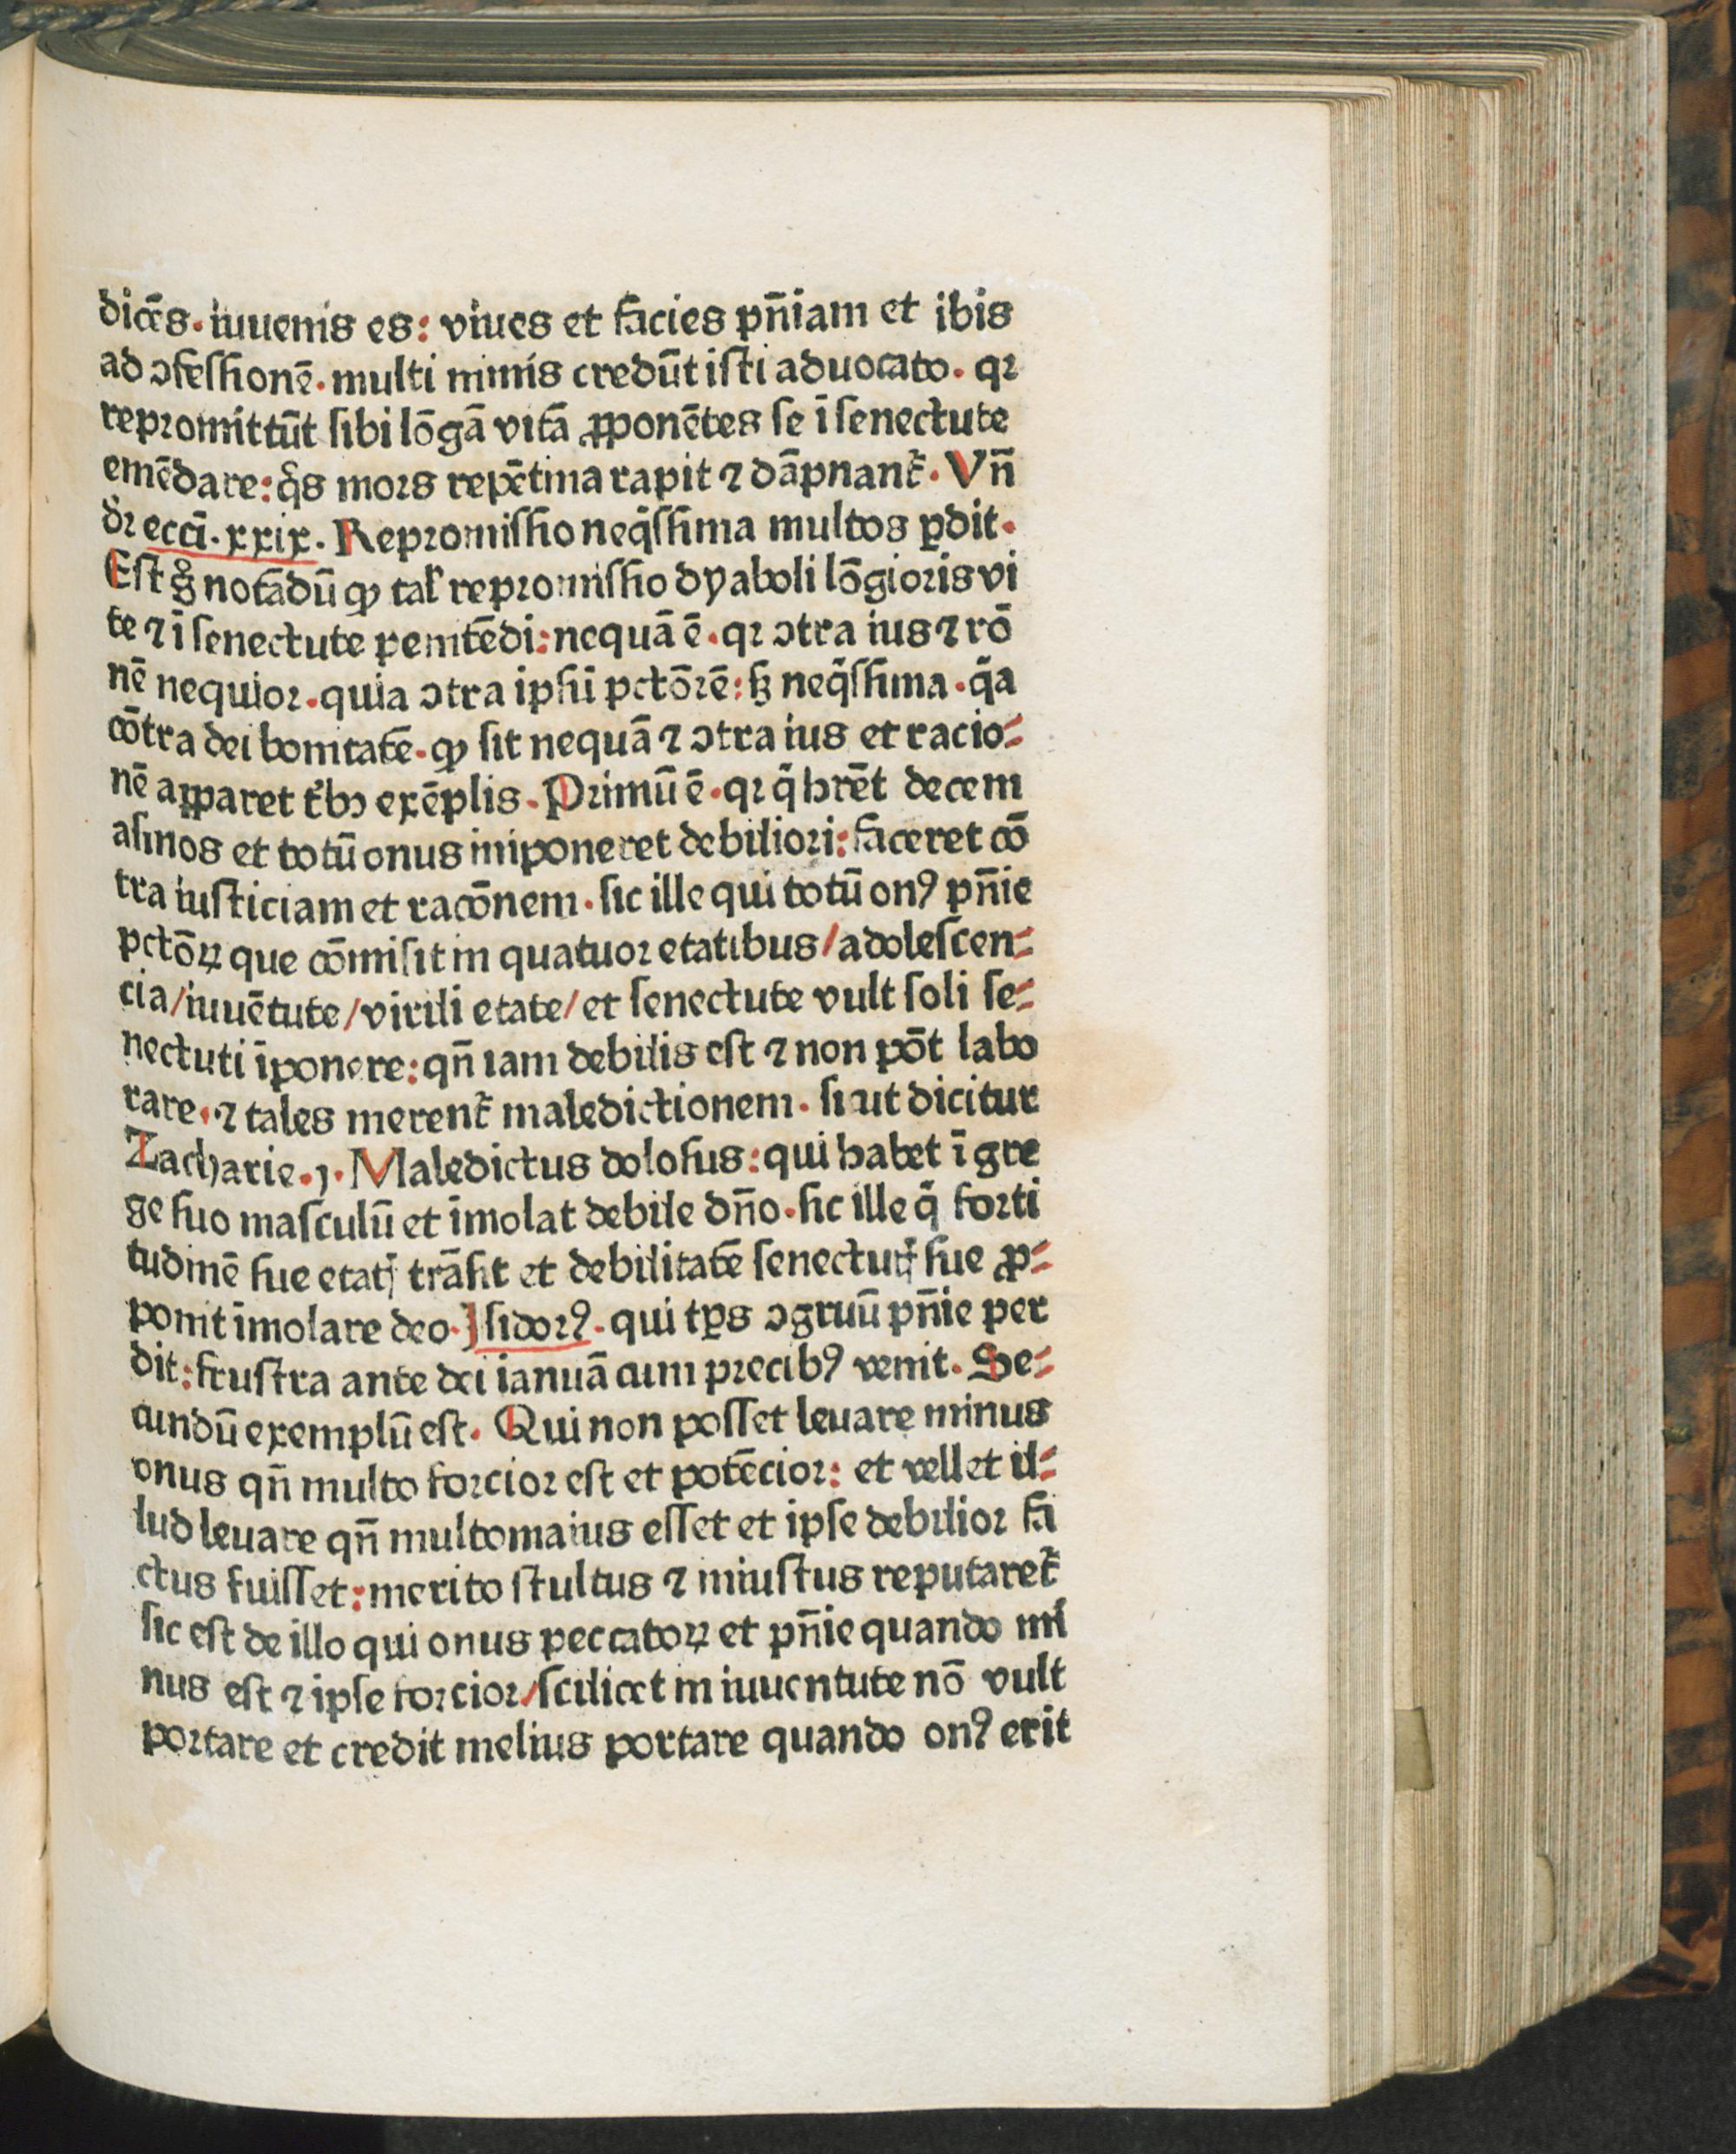 dicēs. iuuenis es: viues et facies pn̄iam et ibis
ad ꝯfeſſionē. multi nimis credūt iſti aduocato. qꝛ
repromittūt ſibi lōgā vitā ꝓponētes ſe ī ſenectute
emēdare: qͦs mors repētina rapit ⁊ dāpnant᷑. Vn̄
dꝛ ecci̅. xxix. Repromiſſio neqͥſſima multos ꝑdit.
Eſt gͦ notādū ꝙ tal' repromiſſio dyaboli lōgioris vi
te ⁊ ī ſenectute penitēdi: nequā ē. qꝛ ꝯtra ius ⁊ rō
nē nequior. quia ꝯtra ipſū pctōrē: ſꝫ neqͥſſima. qͥa
cōtra dei bonitatē. ꝙ ſit nequā ⁊ ꝯtra ius et racio⸗
nē apparet tͥbꝫ exēplis. Primū ē. qꝛ qͥ hr̄et decem
aſinos et totū onus imponeret debiliori: faceret cō
tra iuſticiam et racōnem. ſic ille qui totū onꝰ pn̄ie
pctōꝝ que cōmiſit in quatuor etatibus/adoleſcen⸗
cia/iuuētute/virili etate/et ſenectute vult ſoli ſe⸗
nectuti īponere: qn̄ iam debilis eſt ⁊ non pōt labo
rare. ⁊ tales merent᷑ maledictionem. ſicut dicitur
Zacharie. j. Maledictus doloſus: qui habet ī gre
ge ſuo maſculū et īmolat debile dn̄o. ſic ille qͥ forti
tudinē ſue etatꝭ trāſit et debilitatē ſenectutꝭ ſue ꝓ⸗
ponit īmolare deo. Iſidorꝰ. qui tꝑs ꝯgruū pn̄ie per
dit: fruſtra ante dei ianuā cum precibꝰ venit. Se⸗
cundū exemplū eſt. Qui non poſſet leuare minus
onus qn̄ multo forcior eſt et potēcior: et vellet il⸗
lud leuare qn̄ multo maius eſſet et ipſe debilior fa
ctus fuiſſet: merito ſtultus ⁊ iniuſtus reputaret᷑
ſic eſt de illo qui onus peccatoꝝ et pn̄ie quando mi
nus eſt ⁊ ipſe forcior/ſcilicet in iuuentute nō vult
portare et credit melius portare quando onꝰ erit